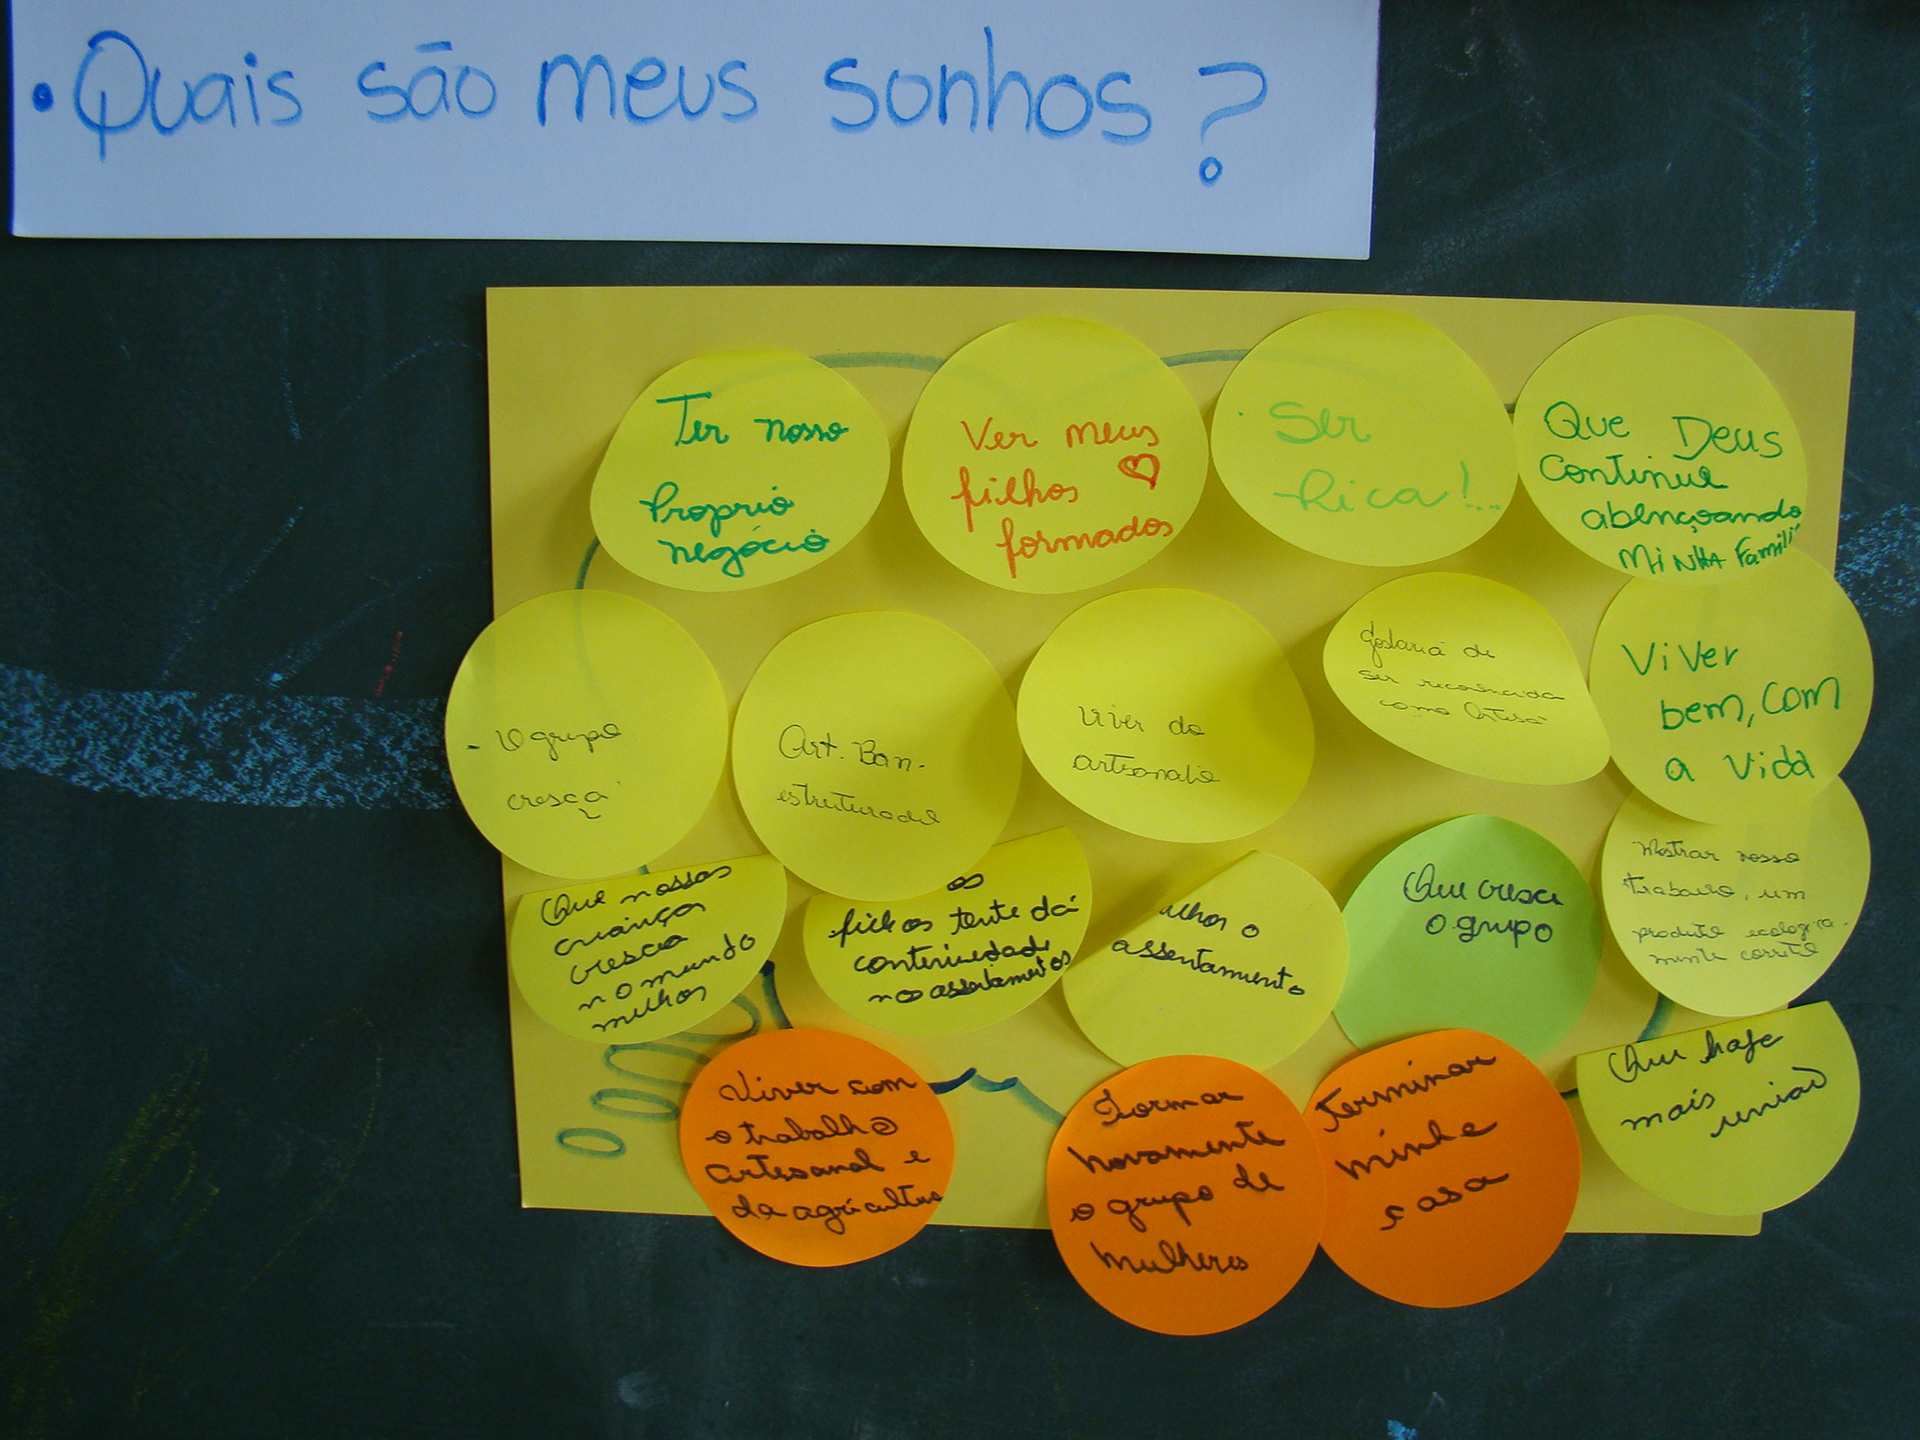 • Quais são meus sonhos?
Ter nosso
Proprio
negócio
Ver meus
filhos
formados
Ser
Rica!...
Que Deus
Continue
abençoando
MiNHA Famili
- O grupo
cresça
Art. Ban.
estruturada
Viver do
artesanato
Gostaria de
ser reconhecida
como Artesã
Viver
bem, com
a vida
Que nossas
criança
cresca
no mundo
milhor
os
filhos tente dá
continuedade
nos assentamentos
assentamento
Que cresca
o grupo
Mostrar nosso
trabalho, um
produto ecologica-
mente correto
Viver com
o trabalho
artesanal e
da agricultura
Formar
novamente
o grupo de
mulheres
Terminar
minha
casa
Que haje
mais
união